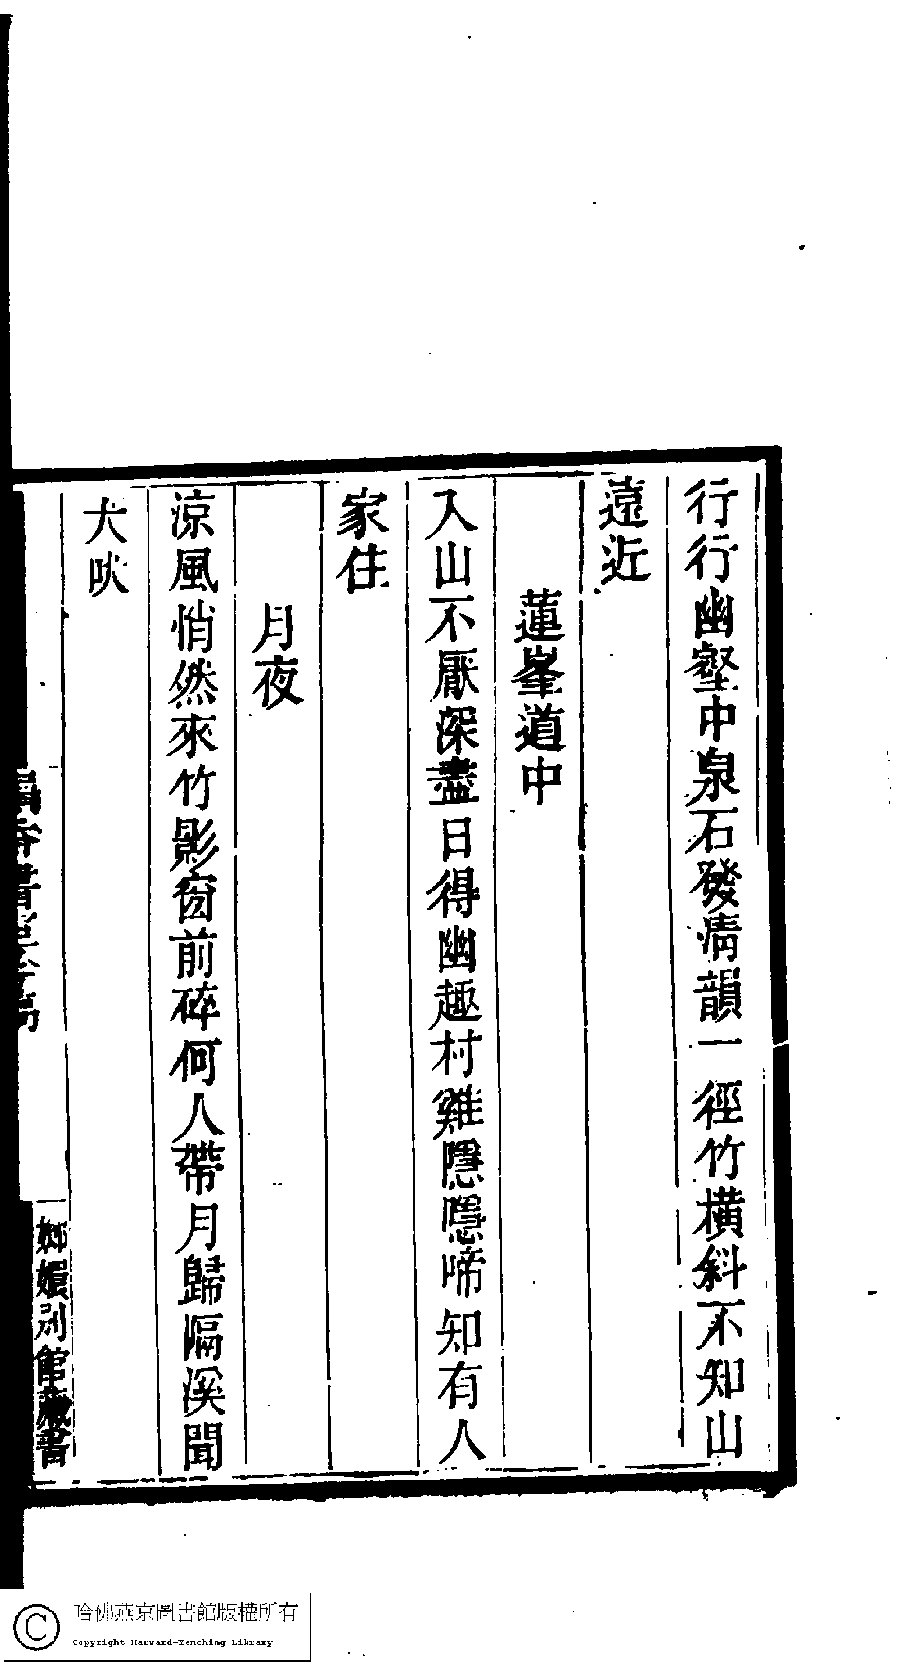 行行幽壑中泉石發清韻一徑竹橫斜不知山
遠近
蓮峯道中
入山不厭深盡日得幽趣村雞隱隱啼知有人
家住
月夜
涼風悄然來竹影窗前碎何人帶月歸隔溪聞
犬吠
書
嫏嬛別館藏書
哈佛燕京圖書館版權所有
Copyright Harvard-Yenching Library